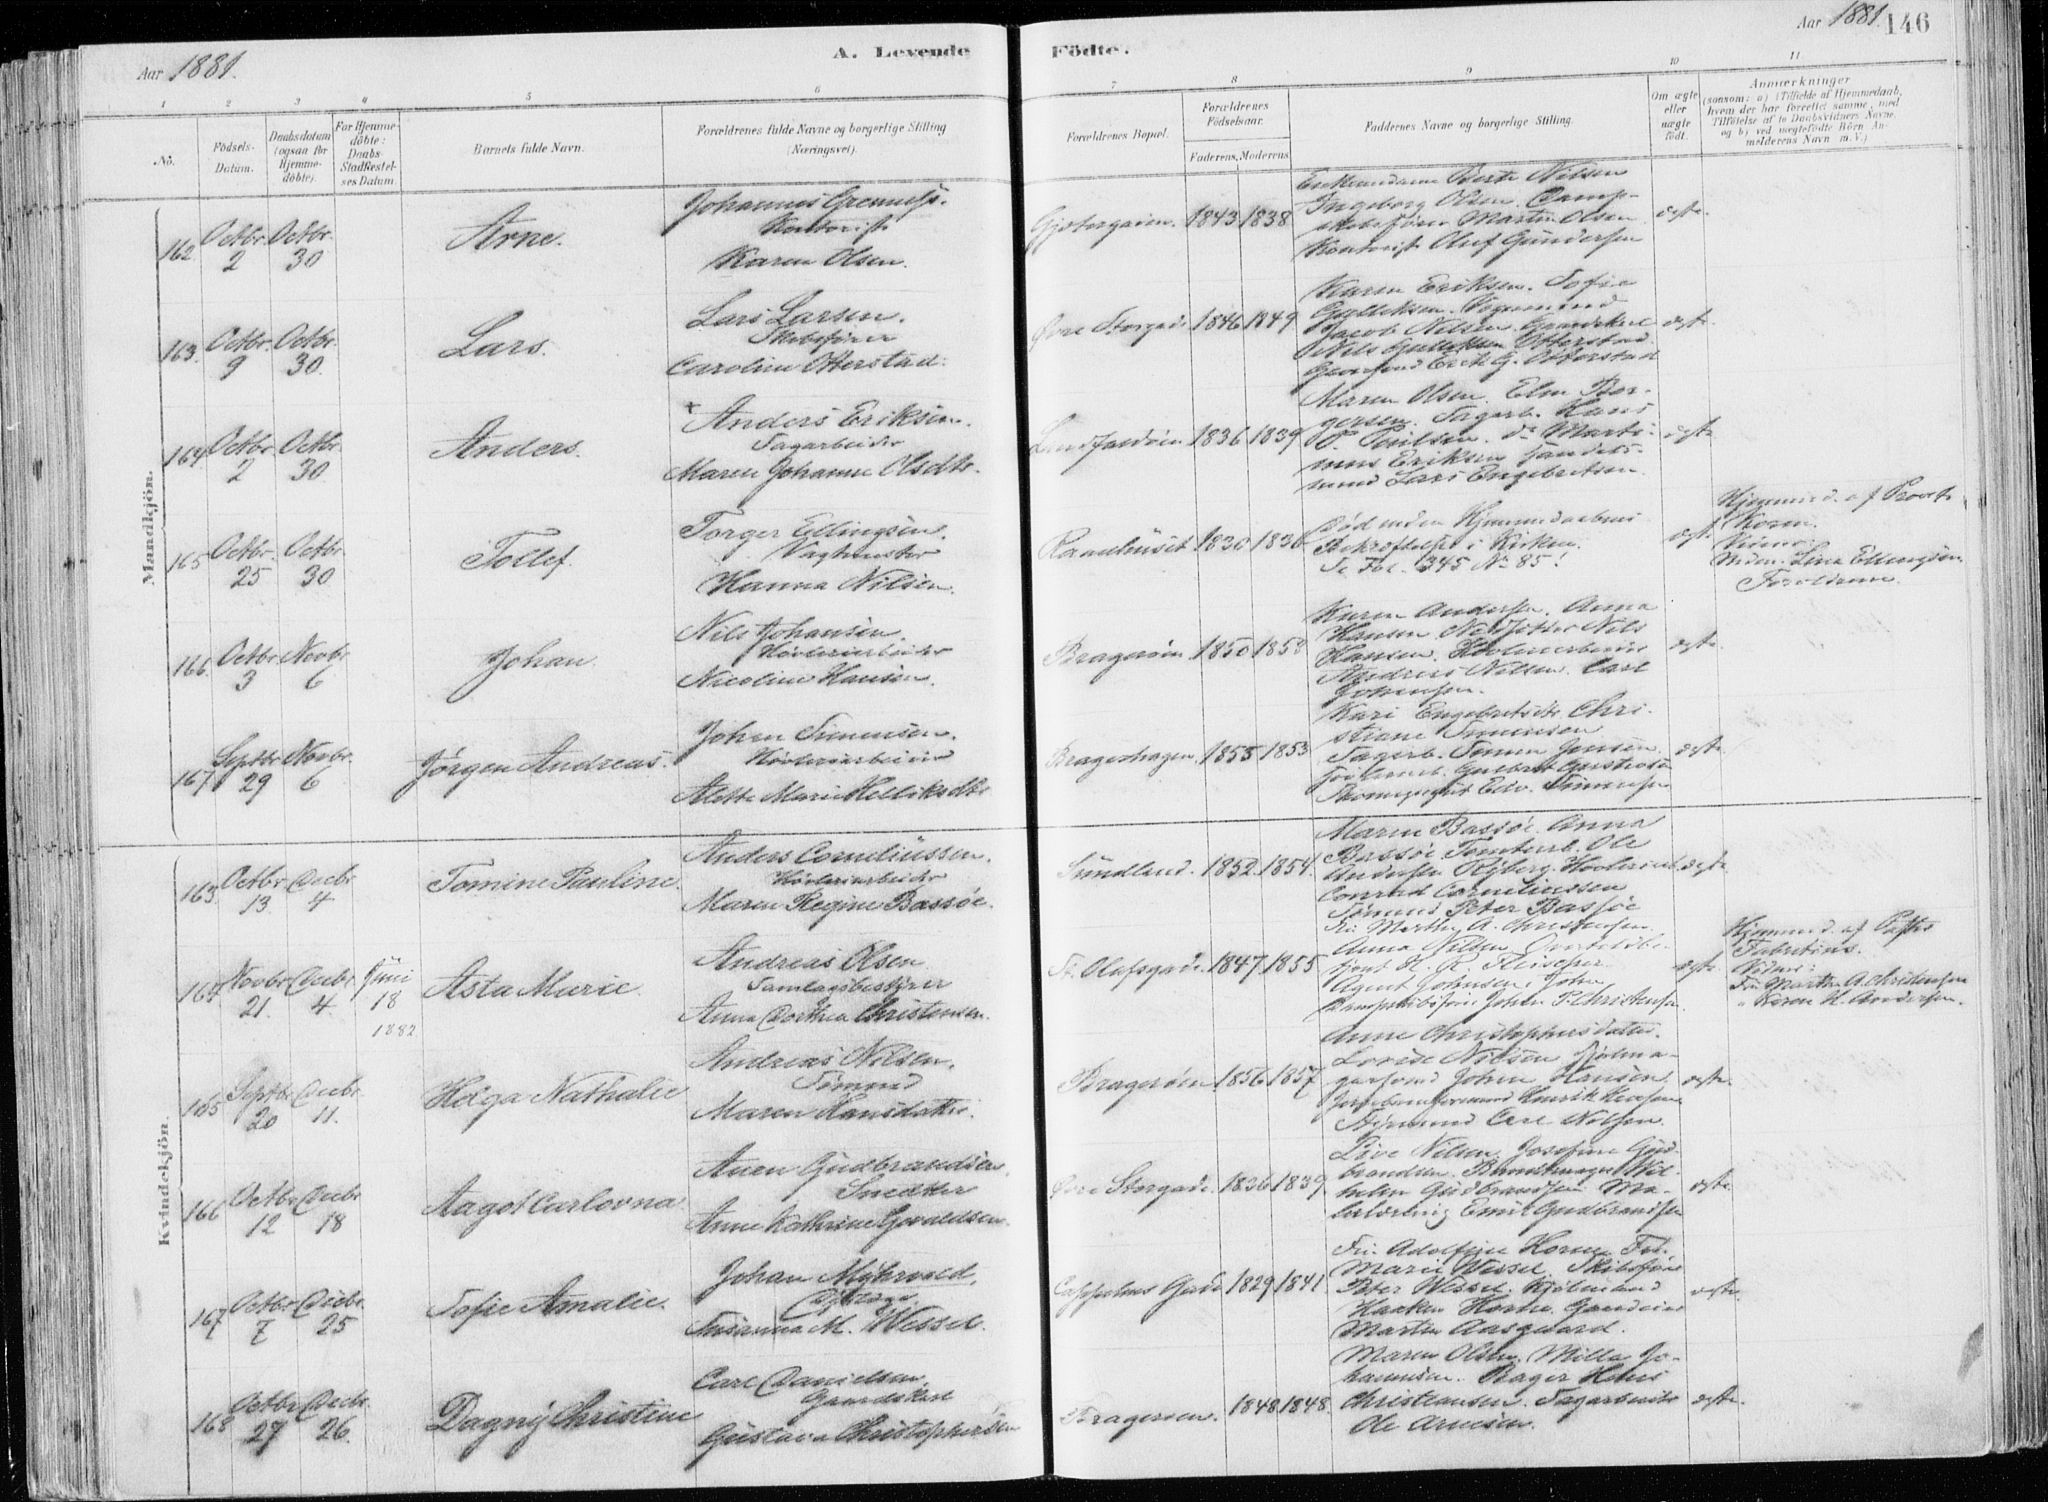 Aar 1881.
A. Levende
Födte.
Aar 1881.
146
1 2 3 4 5 6 7 8 9 10 11
No.
Födsels-Datum.
Daabsdatum (ogsaa for Hjemme-döbte).
For Hjemme-döbte: Daabs-Stadfæstel-ses Datum.
Barnets fulde Navn.
Forældrenes fulde Navne og borgerlige Stilling (Næringsvei).
Forældrenes Bopæl.
Forældrenes Födselsaar.
Faderens. Moderens.
Faddernes Navne og borgerlige Stilling.
Om ægte eller uægte födt.
Anmerkninger
(saasom: a) i Tilfælde af Hjemmedaab, hvem der har forrettet samme, med Tilföielse af to Daabsvidners Navne, og b) ved uægtefödte Börn An-melderens Navn m. V.)
Mandkjön.
162 Octbr. 2 Octbr. 30 Arne.
Johannes
Kontorist
Karen Olsen.
1843 1838
Berte Nilsen
Ingeborg Olsen. Damp-
skibsfører Martin Olsen
Kontorist Oluf Gundersen
ægte.
163. Octbr. 9 Octbr. 30. Lars.
Lars Larsen.
Skibsfører
Caroline Otterstad.
Øvre Storgade 1846 1849
Karen Eriksen. Sofie
Gulliksen.
Jacob Nilsen. Gaardskarl
Nils Gulliksen Otterstad
Erik G. Otterstad
ægte.
164 Octbr. 2 Octbr. 30. Anders.
+ Anders Eriksen.
Sagarbeider
Maren Johanne Olsdtr.
1836 1839
Maren Olsen. Elen Bor-
gersen. Sagarb. Hans
P. Paulsen. do Marti-
nius Eriksen Handels-
mand Lars Engebretsen.
ægte
165 Octbr. 25 Octbr. 30 Tollef.
Torger Ellingsen.
Vagtmester
Hanna Nilsen.
Raadhuset 1830 1836
Død inden Hjemmedaabens
Bekræftelse i Kirken.
Se Fol. 345 No 85!
ægte.
Hjemmed. af Provst
Lina Ellingsen
Forældrene.
166. Octbr. 3 Novbr. 6 Johan.
Nils Johansen.
Høvleriarbeider
Nicoline Hansen.
Bragerøen 1850 1853
Karen Andersen. Anna
Hansen Nils
Hansen. Høvleriarbeider
Andreas Nilsen. Carl
Johansen.
ægte.
167 Septbr. 29 Novbr. 6 Jørgen Andreas.
Johan Simensen.
Høvleriarbeider
Alette Marie Helliksdtr.
Bragerhagen 1855 1853
Kari Engebretsdtr. Chri-
stiane Simensen
Sagarb. Simen Jensen.
Gulbrand
Edv. Simensen
ægte.
Kvindekjön.
163. Octbr. 13. Decbr. 4 Tomine Pauline.
Anders Corneliussen.
Høvleriarbeider
Maren Regine Bassøe.
Sundland. 1852. 1854.
Maren Bassøe. Anna
Bassøe Tomterb. Ole
Andersen Ryberg. Høvleriarb.
Conrad Corneliussen
Sømand Peter Bassøe
ægte
164 Novbr. 21. Decbr. 4. Juni 18 1882 Asta Marie.
Andreas Olsen
Samlagsbestyrer
Anna Dorthea Christensen.
St. Olafsgade. 1847. 1855
Fru Marthe A. Christensen
Anna Nilsen
Agent Johnsen, John
Dampskibsfører Johan P. Christensen
ægte.
Hjemmed. af Pastor
Fabritius.
Vidner:
Fru Marthe A. Christensen
" Karen H. Andersen.
165 Septbr. 20 Decbr. 11. Helga Nathalie
Andreas Nilsen.
Sømand
Maren Hansdatter.
Bragerøen 1856 1857
Anne Christophersdatter.
Lovise Nilsen
Johan Hansen.
Henrik Hansen
Styrmand Carl Nilsen.
ægte.
166 Octbr. 12 Decbr. 18 Aagot Carlovna
Aven Gudbrandsen.
Snedker
Anne Kathrine Gjerulldsen.
Øvre Storgade. 1836 1839
Live Nilsen. Josefine Gud-
brandsen. Bundtmager Wil-
helm Gudbrandsen Ma-
lerlærling Emil Gudbrandsen
ægte.
167 Octbr. 7 Decbr. 25 Sofie Amalie.
Johan Myhrvold.
Susanna M. Wessel.
Cappelens Gade 1829 1841
Fru Adolfine Horne Frk.
Marie Wessel. Skibsfører
Peter Wessel. Kjøbmand
Haaken Horne.
Martin Aasgaard.
ægte.
168 Octbr. 27 Decbr. 26. Dagny Christine
Carl Danielsen.
Gaardskarl
Gustava Christophersen
Bragerøen. 1848 1848.
Maren Olsen. Milla Jo-
hannesen. Bager Hans
Christiansen. Sagarbeider
Ole Arnesen.
ægte.